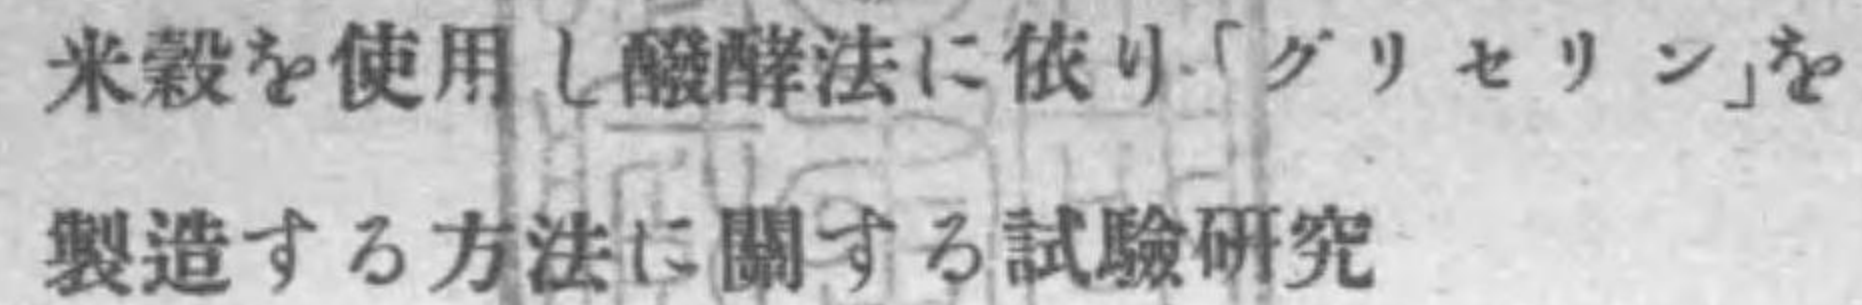 米穀を使用し醱酵法に依り「グリセリン」を
製造する方法に關する試驗研究